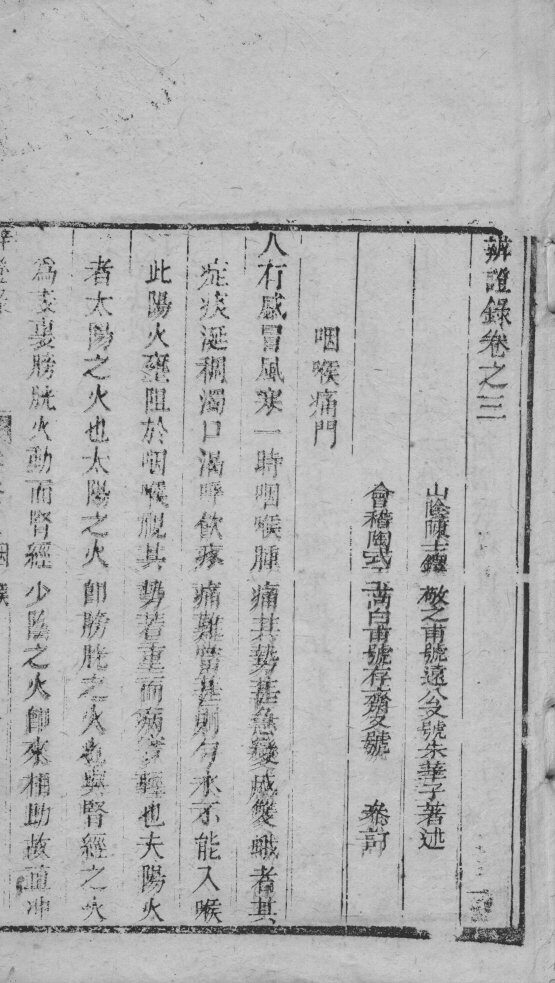 辨證錄卷之三
山陰陳士鐸 敬之甫號遠公又號朱華子著述
會稽陶式玉尚白甫號存齋又號 叅訂
咽喉痛門
人有感冒風寒一時咽喉腫痛其勢甚急變成雙蛾者其
症痰涎稠濁口渴呼飲疼痛難當甚則勺水不能入喉
此陽火壅阻於咽喉視其勢若重而病實輕也夫陽火
者太陽之火也太陽之火卽膀胱之火也與腎經之火
為表裏膀胱火動而腎經少陰之火卽來相助故直冲